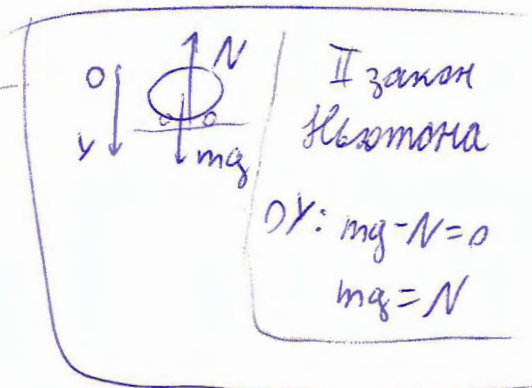 O
Y
N
mg
II закон
Ньютона
OY: mg-N=0
mg=N